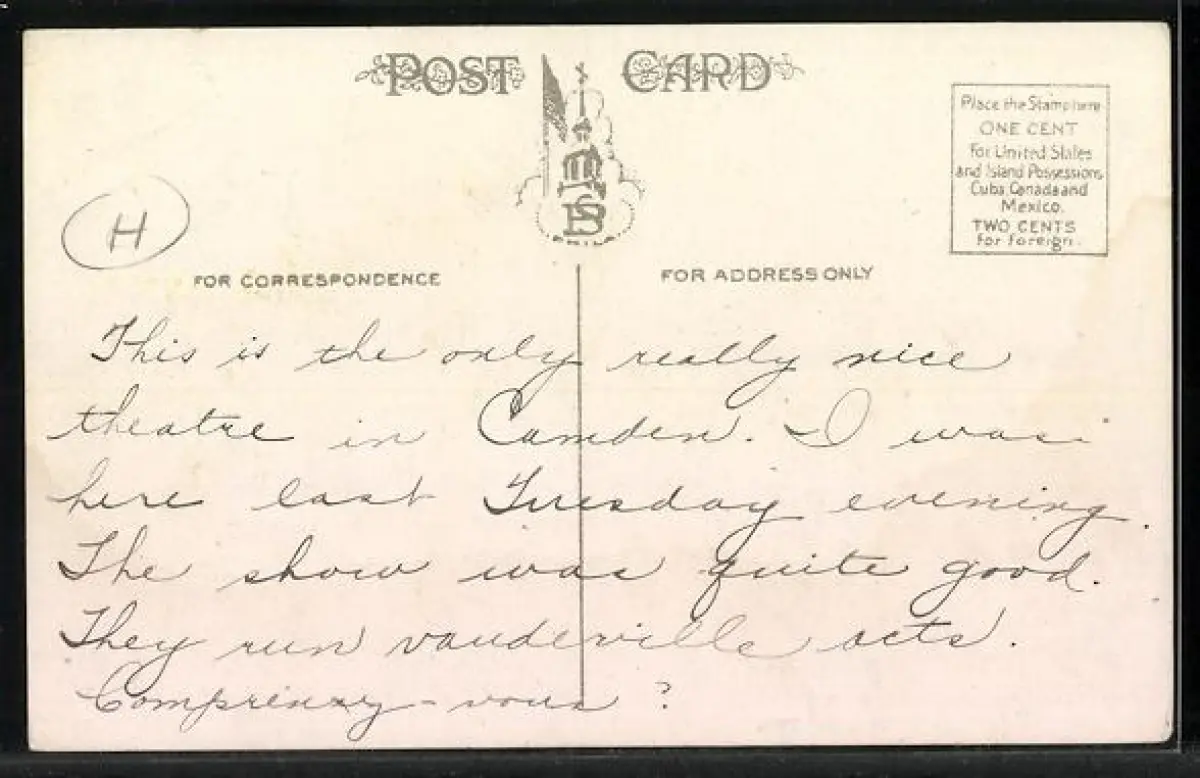 POST CARD
Place the Stamp here
ONE CENT
For United States
and Island Possessions
Cuba Canada and
Mexico.
TWO CENTS
For Foreign.
BS
PHILA.
H
FOR CORRESPONDENCE
FOR ADDRESS ONLY
This is the only really nice
theatre in Camden. I was
here last Tuesday evening.
The show was quite good.
They run vaudeville acts.
Comprenez-vous?